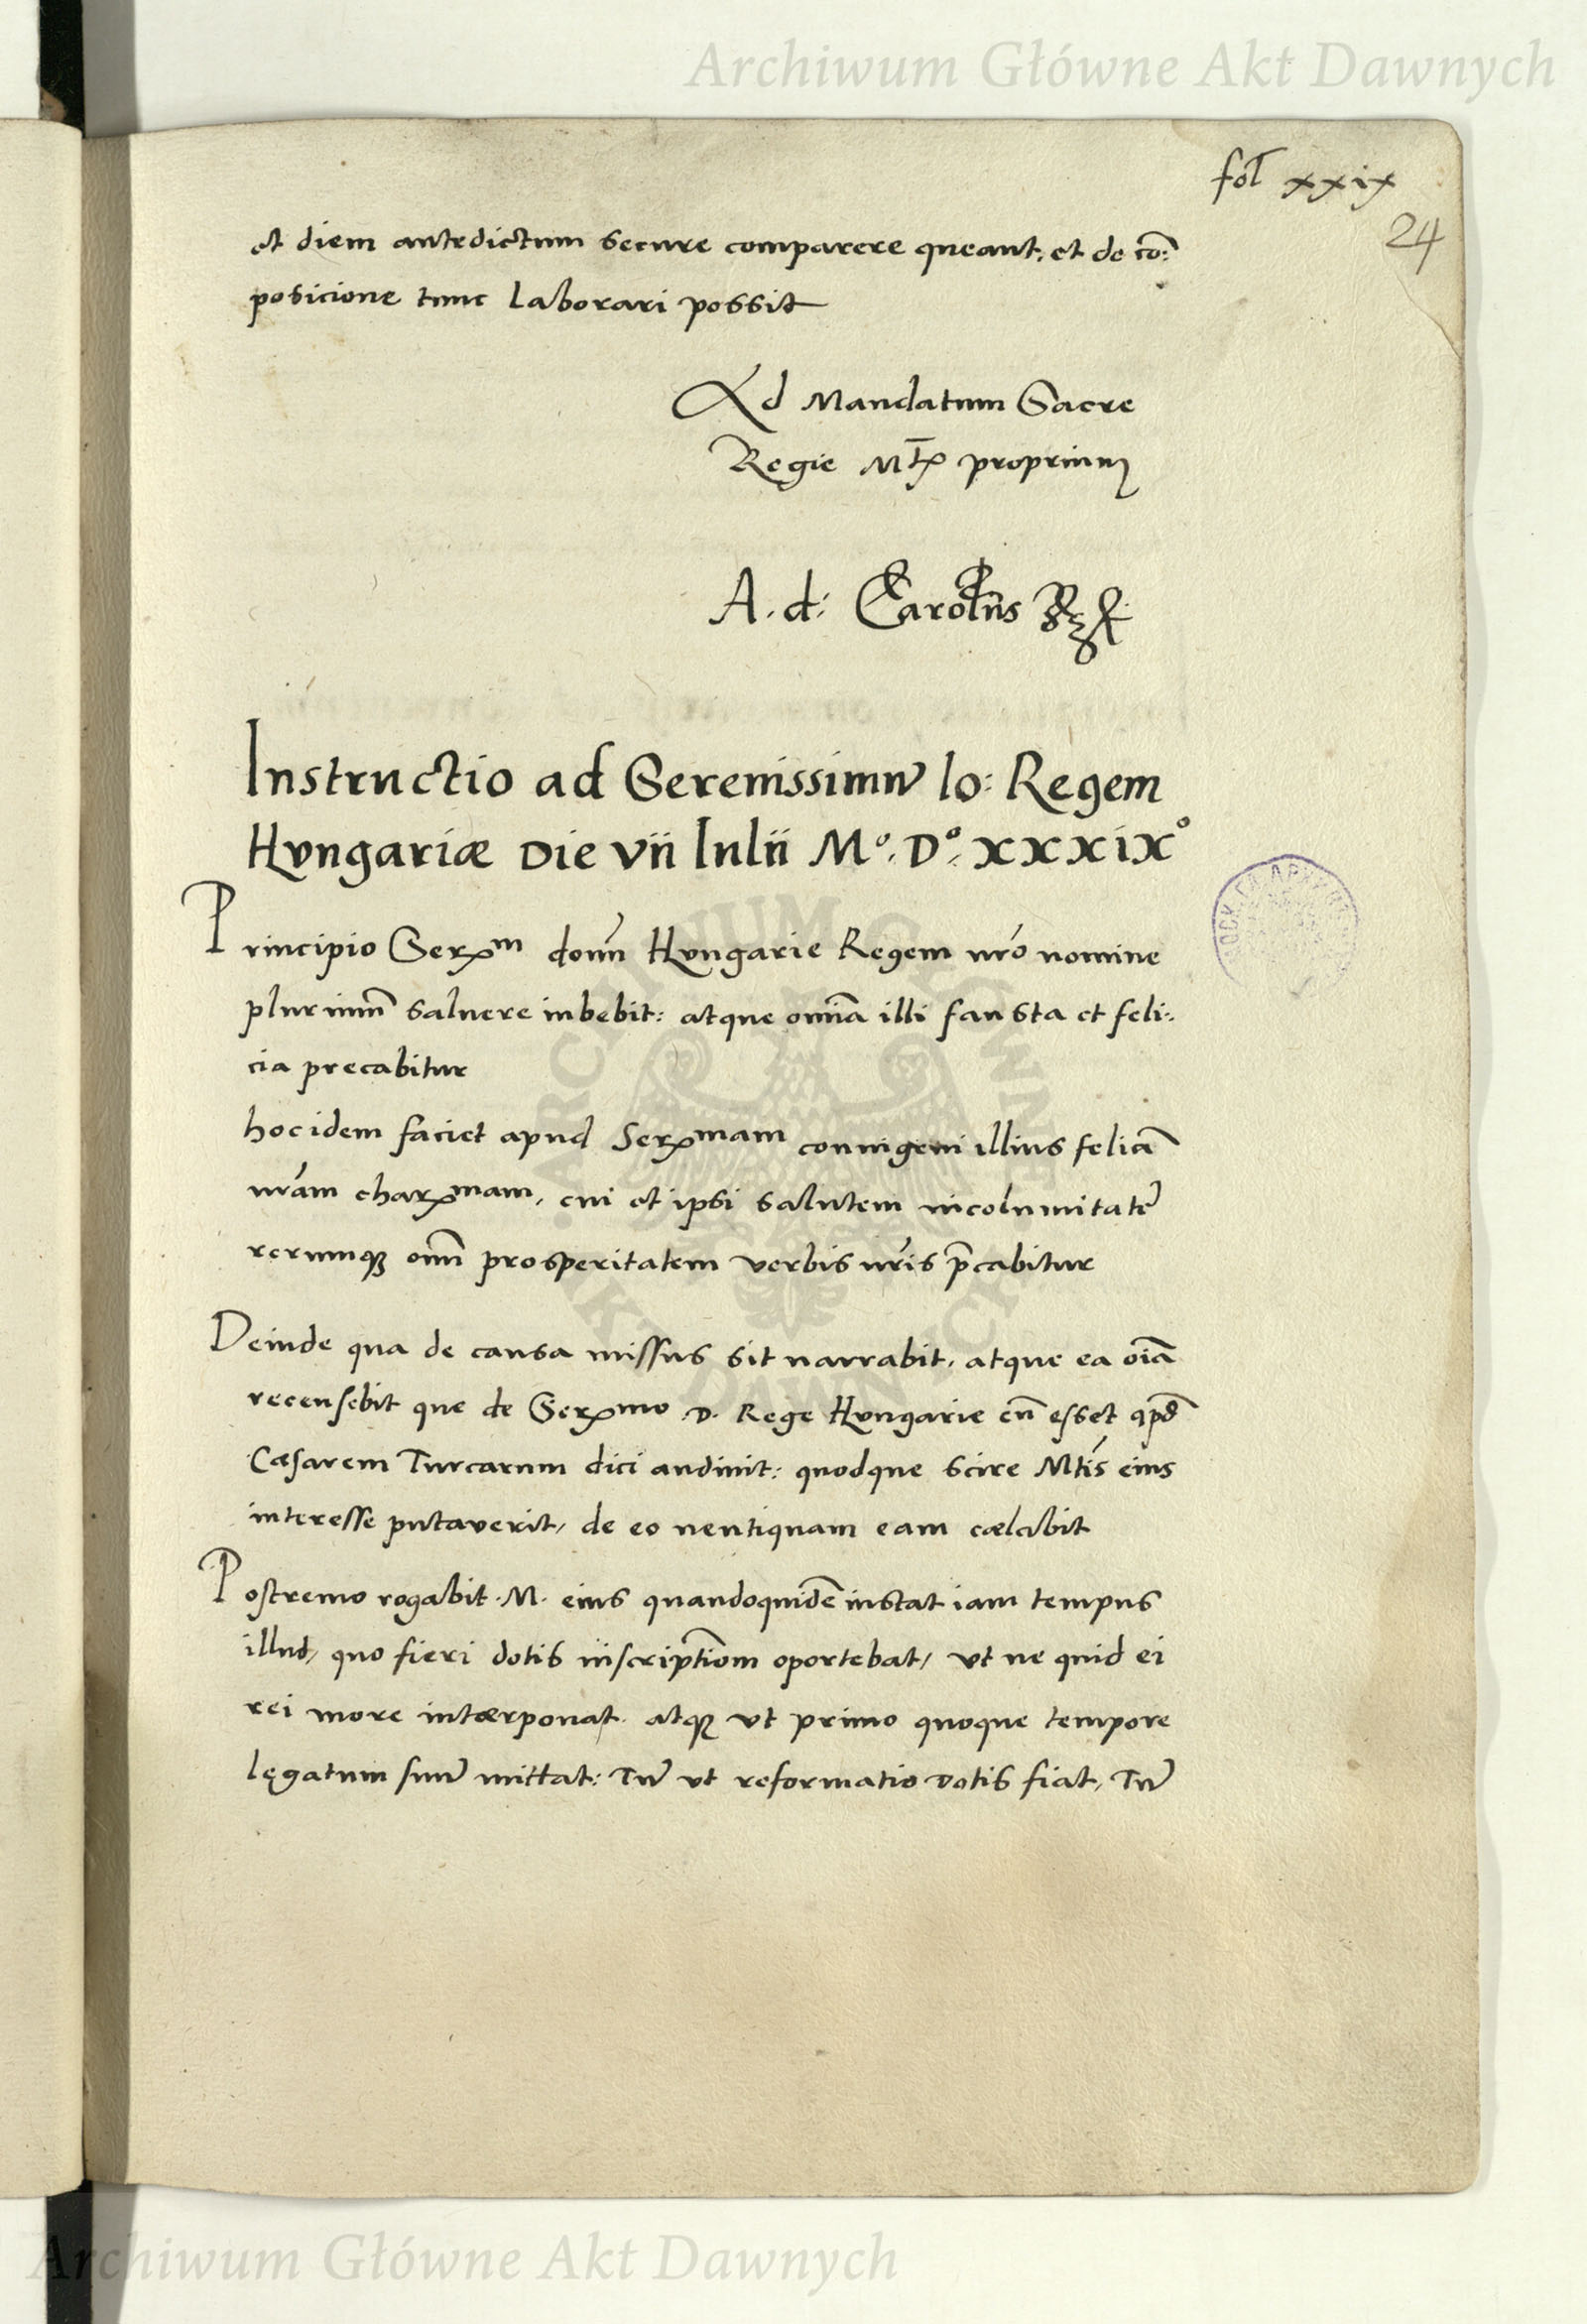 Archiwum Główne Akt Dawnych
fol xxix
24
et diem antedictum secure comparere queant, et de co:
posicione tunc laborari possit
Ad Mandatum Sacre
Regie Mtis proprium
A. d: Carolus
Instructio ad Serenissimū Io: Regem
Hungariæ Die vii Iulii Mº. Dº. XXXIXº
Principio Serxm domī Hungarie Regem nr̄o nomine
plurimū salvere iubebit: atque omīa illi fausta et feli:
cia precabitur
hoc idem faciet apud Serxmam coniugem illius feliā
nrām charxmam, cui et ipsi salutem incolumitatē
rerumque omn̄ prosperitatem verbis nr̄is p̄cabitur
Deinde qua de causa missus sit narrabit, atque ea oīa
recensebit que de Serxmo D. Rege Hungarie cū esset apd̄
Cæsarem Turcarum dici audivit: quodque scire Mtis eius
interesse putaverit, de eo neutiquam eam cælabit
Postremo rogabit .M. eius quandoquidē instat iam tempus
illud, quo fieri dotis inscriptiōm oportebat, ut ne quid ei
rei more intærponat. atque ut primo quoque tempore
lęgatum suū mittat: Tū ut reformatio dotis fiat, Tū
Archiwum Główne Akt Dawnych